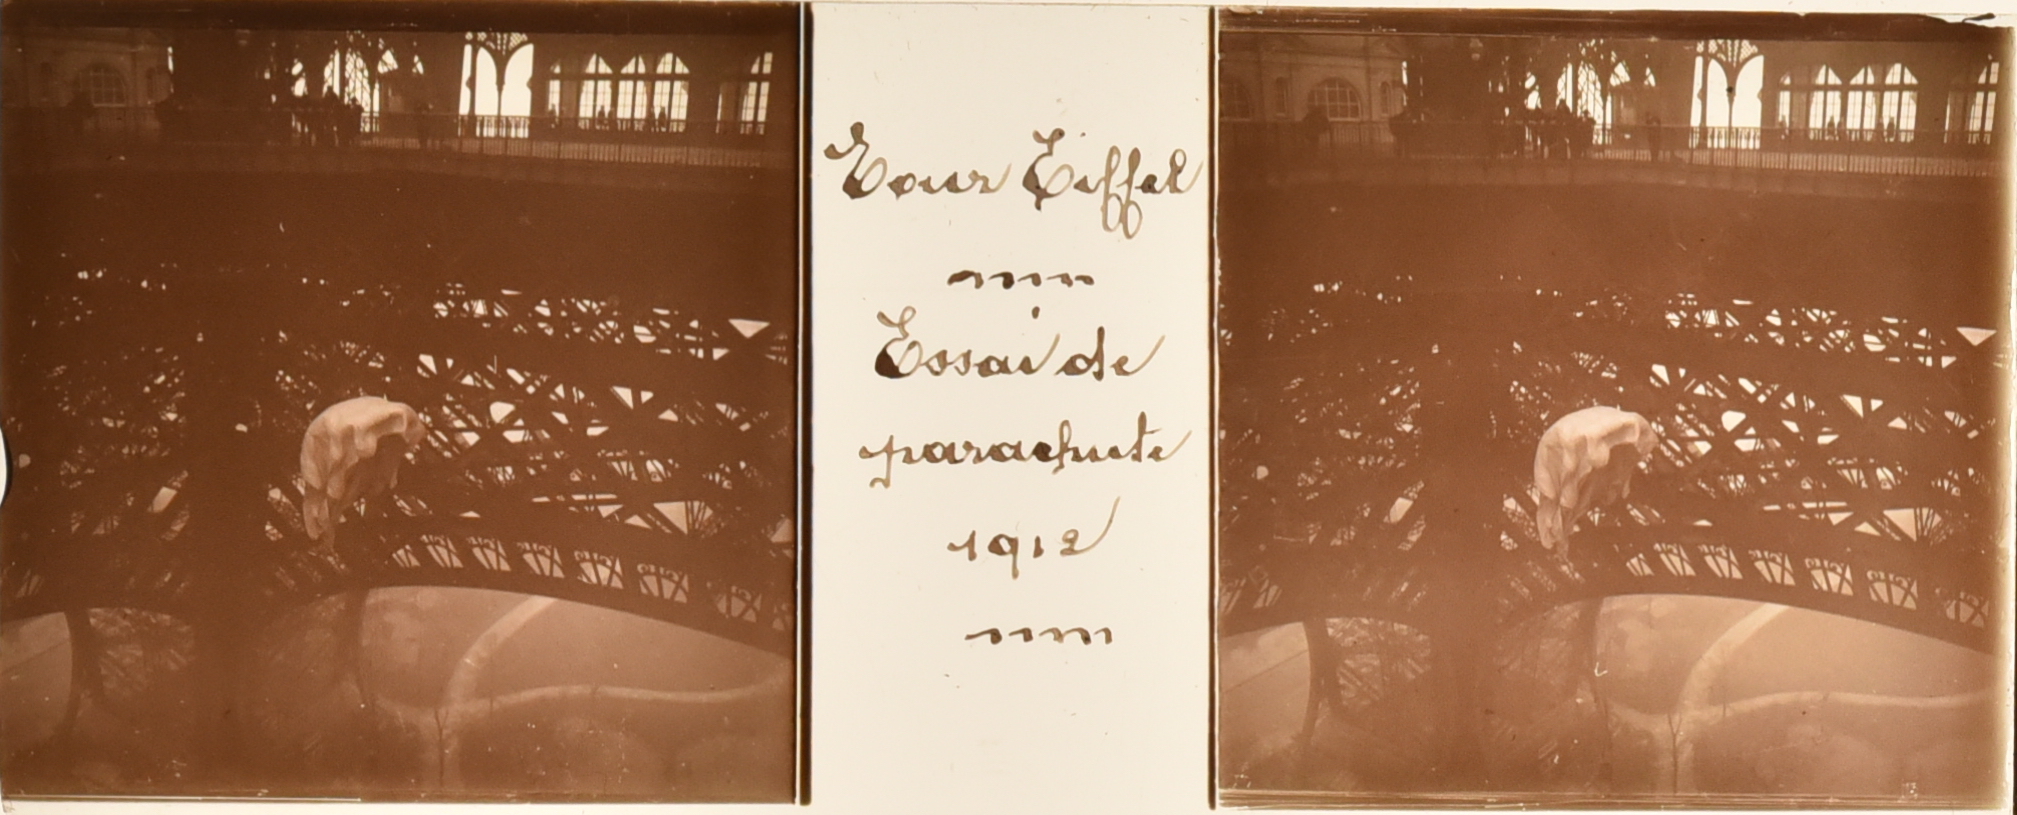 Tour Eiffel
Essai de
parachute
1912